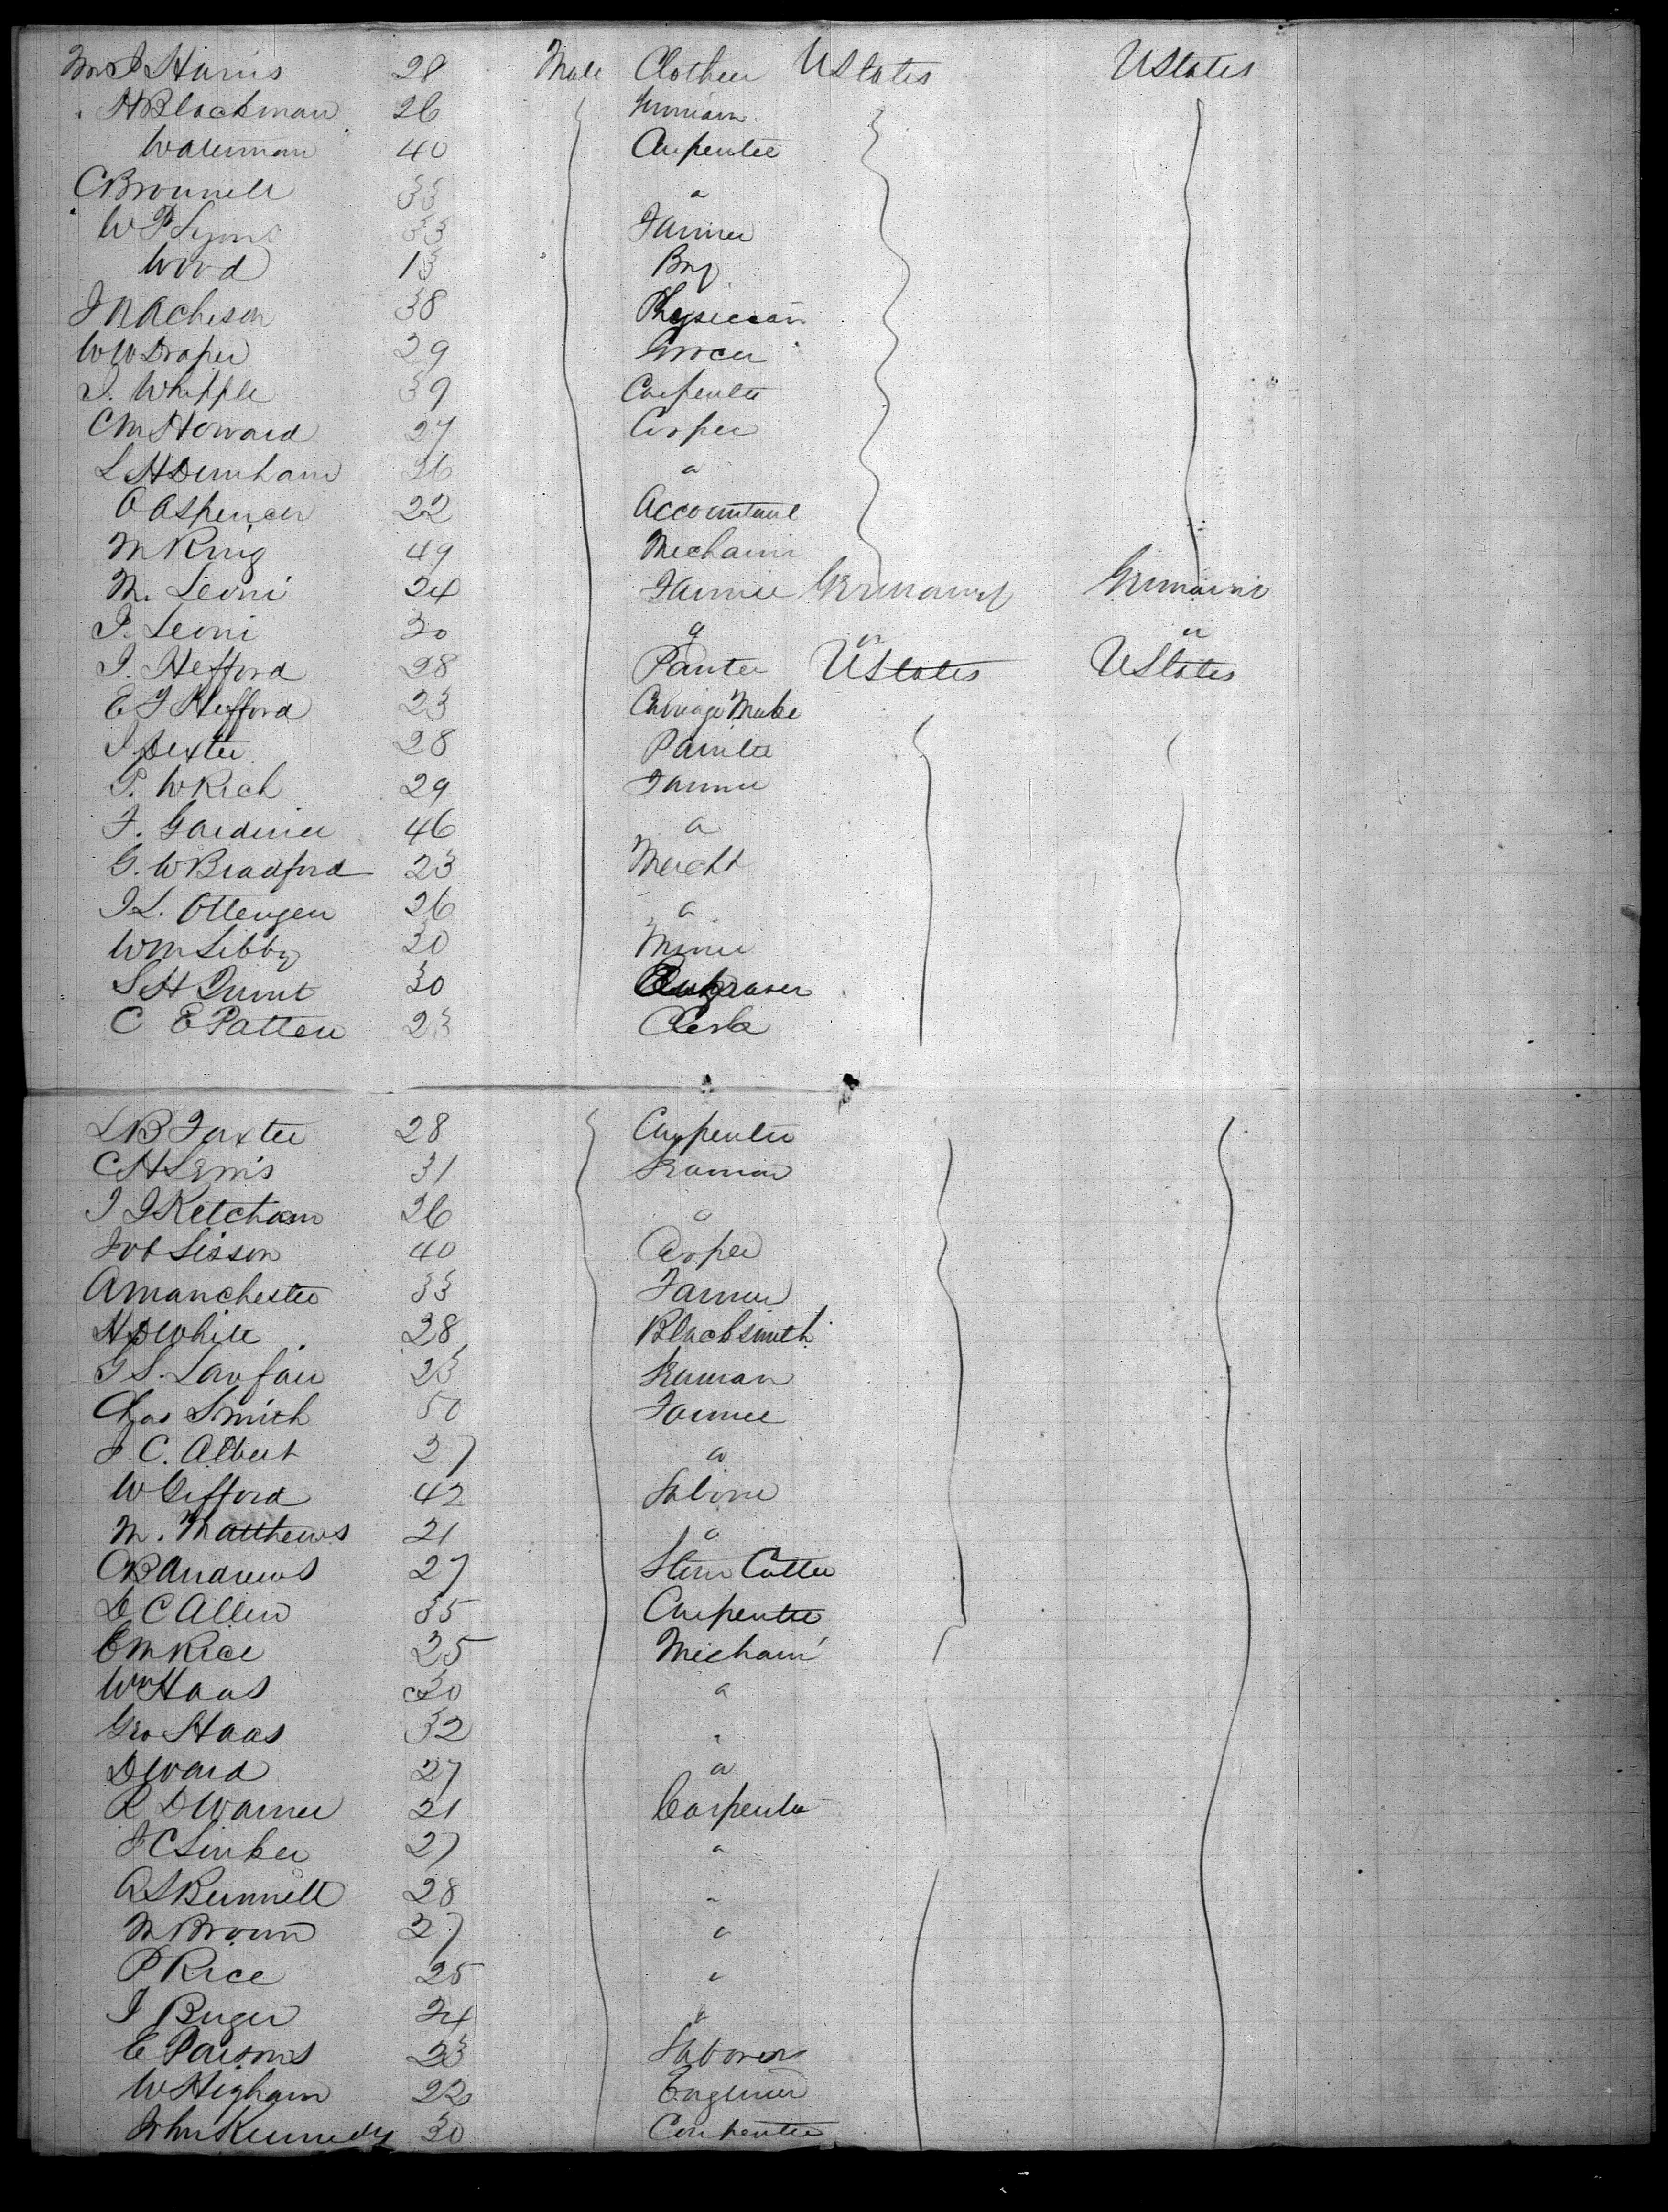 Mr J Harris 28 Male Clothier UStates UStates
H Blackman 26
Waterman 40 Carpenter
C Brownell 33 "
W P Lyons 33 Farmer
Wood 13 Boy
J N Acheson 38 Physician
W W Draper 29 Grocer
J. Whipple 39 Carpenter
C M Howard 27 Cooper
L H Denham 36 "
O A Spencer 22 Accountant
M King 49 Mechanic
M. Leoni 24 Farmer Germany Germany
J. Leoni 30 " " "
J. Hefford 28 Painter UStates UStates
E J Hefford 23 Carriage Maker
J Dexter 28 Painter
P. W Rich 29 Farmer
F. Gardener 46 "
G. W Bradford 23 Mercht
J L. Ottengen 26 "
Wm Libby 30 Miner
S H Quint 30 Engraver
C E Patten 23 Clerk
L B Foxter 28 Carpenter
C H Lewis 31 Seaman
J J Ketcham 26 "
Job Sisson 40 Cooper
A Manchester 33 Farmer
H D White 28 Blacksmith
G S. Lanfair 23 Seaman
Chas Smith 50 Farmer
J. C. Albert 27 "
W Gifford 42 Labore
M. Matthews 21 "
C B Andrews 27 Stone Cutter
D C Allen 35 Carpenter
E M Rice 25 Mechanic
Wm Haas 30 "
Geo Haas 32 "
D Ward 27 "
R D Warner 21 Carpenter
J C Linker 27 "
A S Bunnell 28 "
M Brown 27 "
P Rice 25 "
J Buger 24 "
E Parsons 23 Laborer
W Higham 22 Engineer
John Kennedy 30 Carpenter